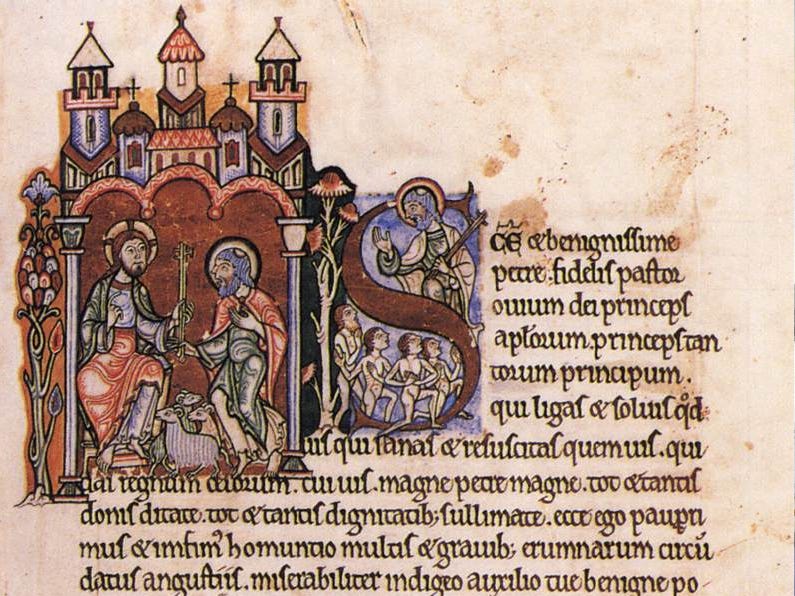 SCE̅ & benignissime
petre. fidelis pastor
ouium dei princeps
apl̅orum. princeps tan
torum principum.
qui ligas & soluis qd̊
uis qui sanas & resuscitas quem uis. qui
das regnum celorum. cui uis. magne petre magne. tot & tantis
donis ditate. tot & tantis dignitatib; sullimate. ecce ego pauꝑri
mus & imfim᾽ homuntio multis & grauib; erumnarum circū
datus angustiis. miserabiliter indigeo auxilio tue benigne po